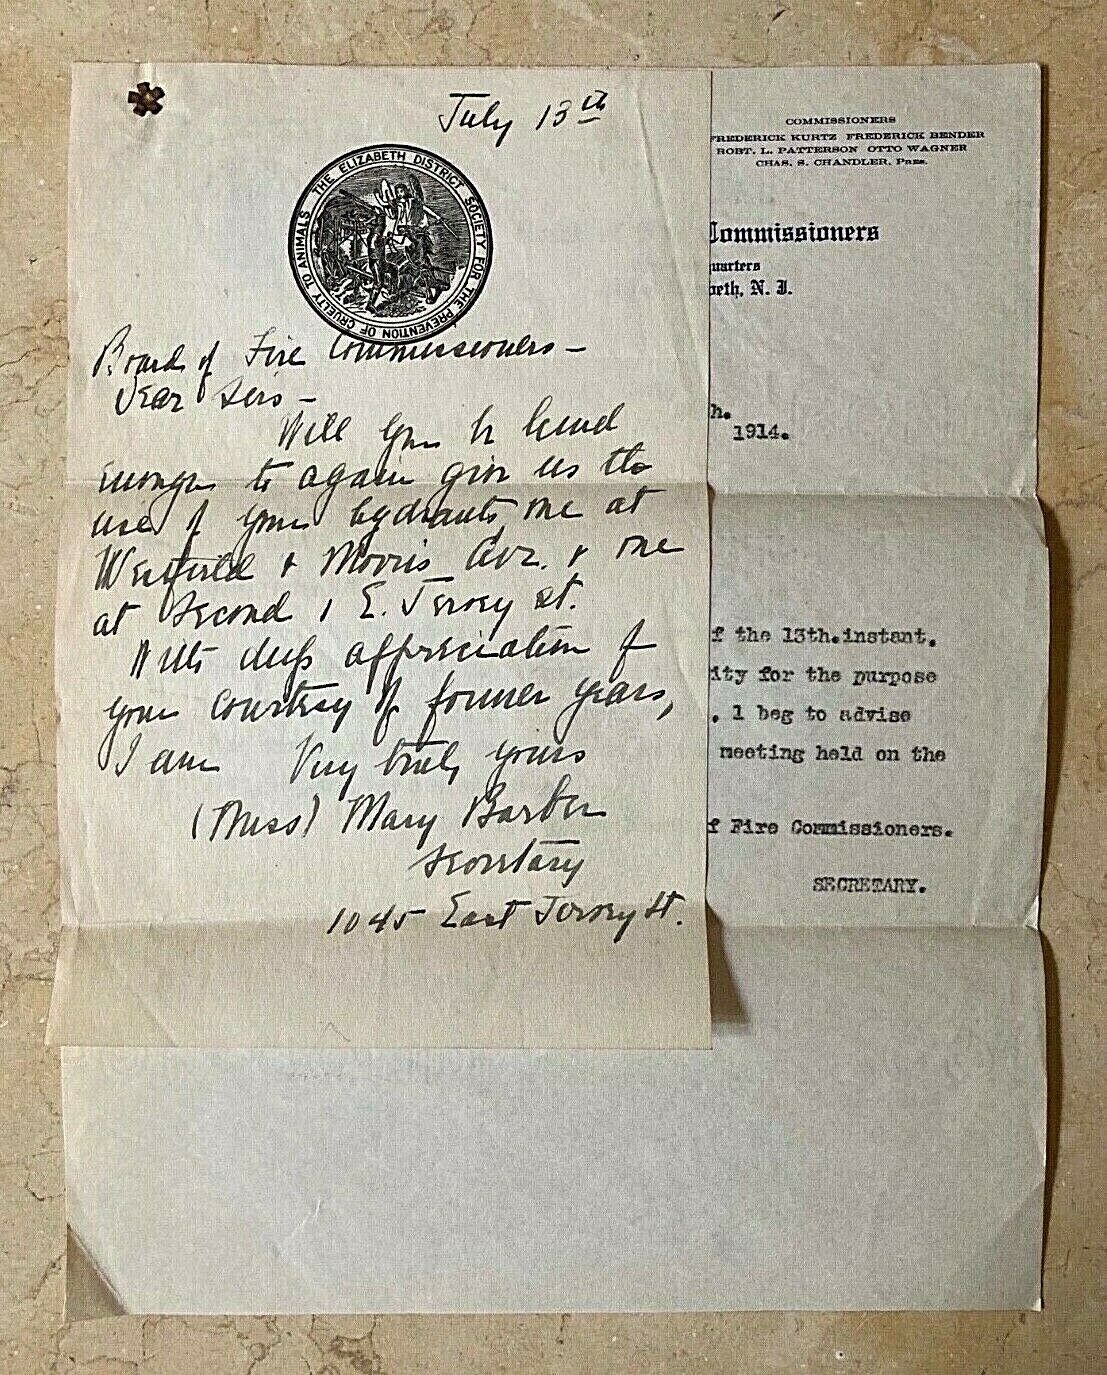 July 13th
THE ELIZABETH DISTRICT SOCIETY FOR THE PREVENTION OF CRUELTY TO ANIMALS
Board of Fire Commissioners –
Dear Sirs –
Will you be kind
enough to again give us the
use of your hydrants, one at
Westfield & Morris Ave. & one
at Second & E. Jersey St.
With deep appreciation of
your courtesy of former years,
I am Very truly yours
(Miss) Mary Barber
Secretary
1045 East Jersey St.
COMMISSIONERS
FREDERICK KURTZ FREDERICK BENDER
ROBT. L. PATTERSON OTTO WAGNER
CHAS. S. CHANDLER, Pres.
Commissioners
quarters
beth, N. J.
h.
1914.
f the 13th.instant.
ity for the purpose
. 1 beg to advise
meeting held on the
f Fire Commissioners.
SECRETARY.